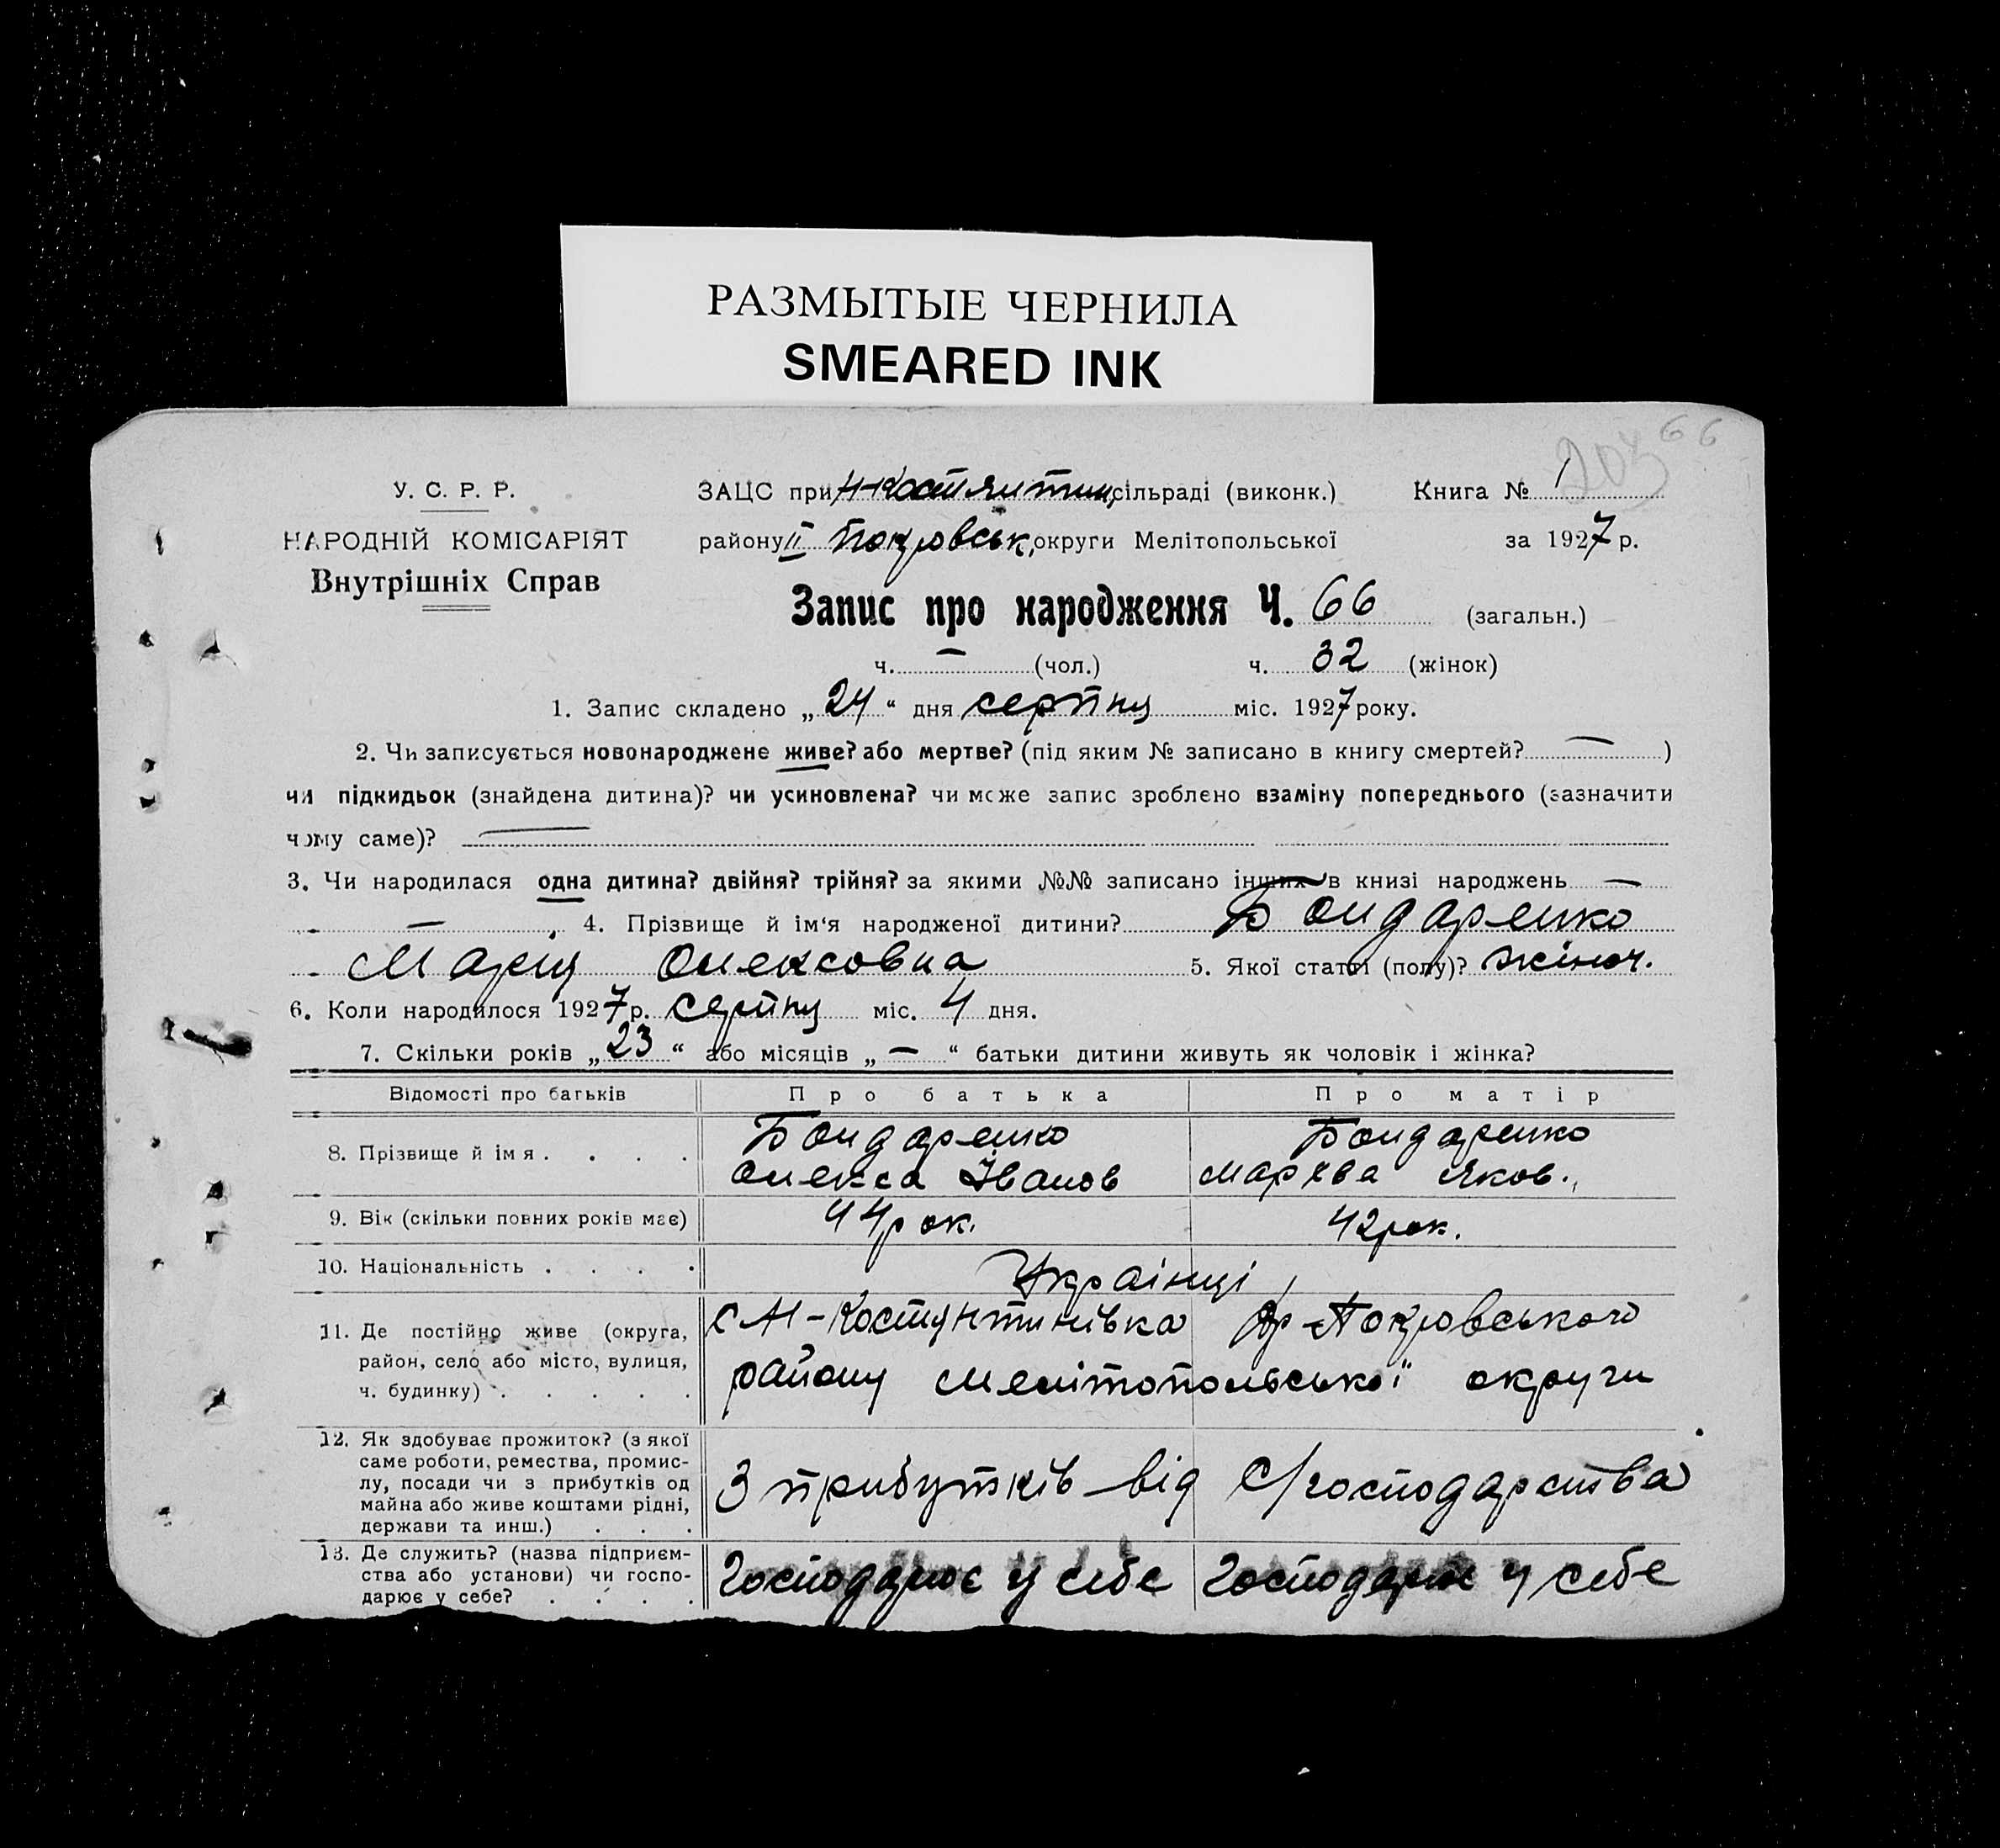 РАЗМЫТЫЕ ЧЕРНИЛА
SMEARED INK
66
У. С. Р. Р.
НАРОДНІЙ КОМІСАРІЯТ
Внутрішніх Справ
ЗАЦС при сільраді (виконк.)
Книга № 1
району II Покровськ, округи Мелітопольської
за 1927 р.
Запис про народження Ч. 66 (загальн.)
ч. — (чол.) ч. 32 (жінок)
1. Запис складено „24“ дня серпня міс. 1927 року.
2. Чи записується новонароджене живе? або мертве? (під яким № записано в книгу смертей? — )
чи підкидьок (знайдена дитина)? чи усиновлена? чи може запис зроблено взаміну попереднього (зазначити
чому саме)? —
3. Чи народилася одна дитина? двійня? трійня? за якими №№ записано інших в книзі народжень —
— 4. Прізвище й ім‘я народженої дитини? Бондаренко
Марія Олексовна 5. Якої статті (полу)? жіноч.
6. Коли народилося 1927 р. серпня міс. 4 дня.
7. Скільки років „23“ або місяців „—“ батьки дитини живуть як чоловік і жінка?
Відомості про батьків Про батька Про матір
8. Прізвище й імя . . . .
Бондаренко
Олекса Іванов
Бондаренко
Мархва Яков.,
9. Вік (скільки повних років має) 44 рок. 42 рок.
10. Національність . . . . Українці
11. Де постійно живе (округа,
район, село або місто, вулиця,
ч. будинку) . . . . .
Костянтинівка Покровського
району Мелітопольської округи
12. Як здобуває прожиток? (з якої
саме роботи, ремества, промис-
лу, посади чи з прибутків од
майна або живе коштами рідні,
держави та инш.) . . .
З прибутків від С/господарства
13. Де служить? (назва підприєм-
ства або установи) чи госпо-
дарює у себе? . . . .
Господарює у себе Господарює у себе